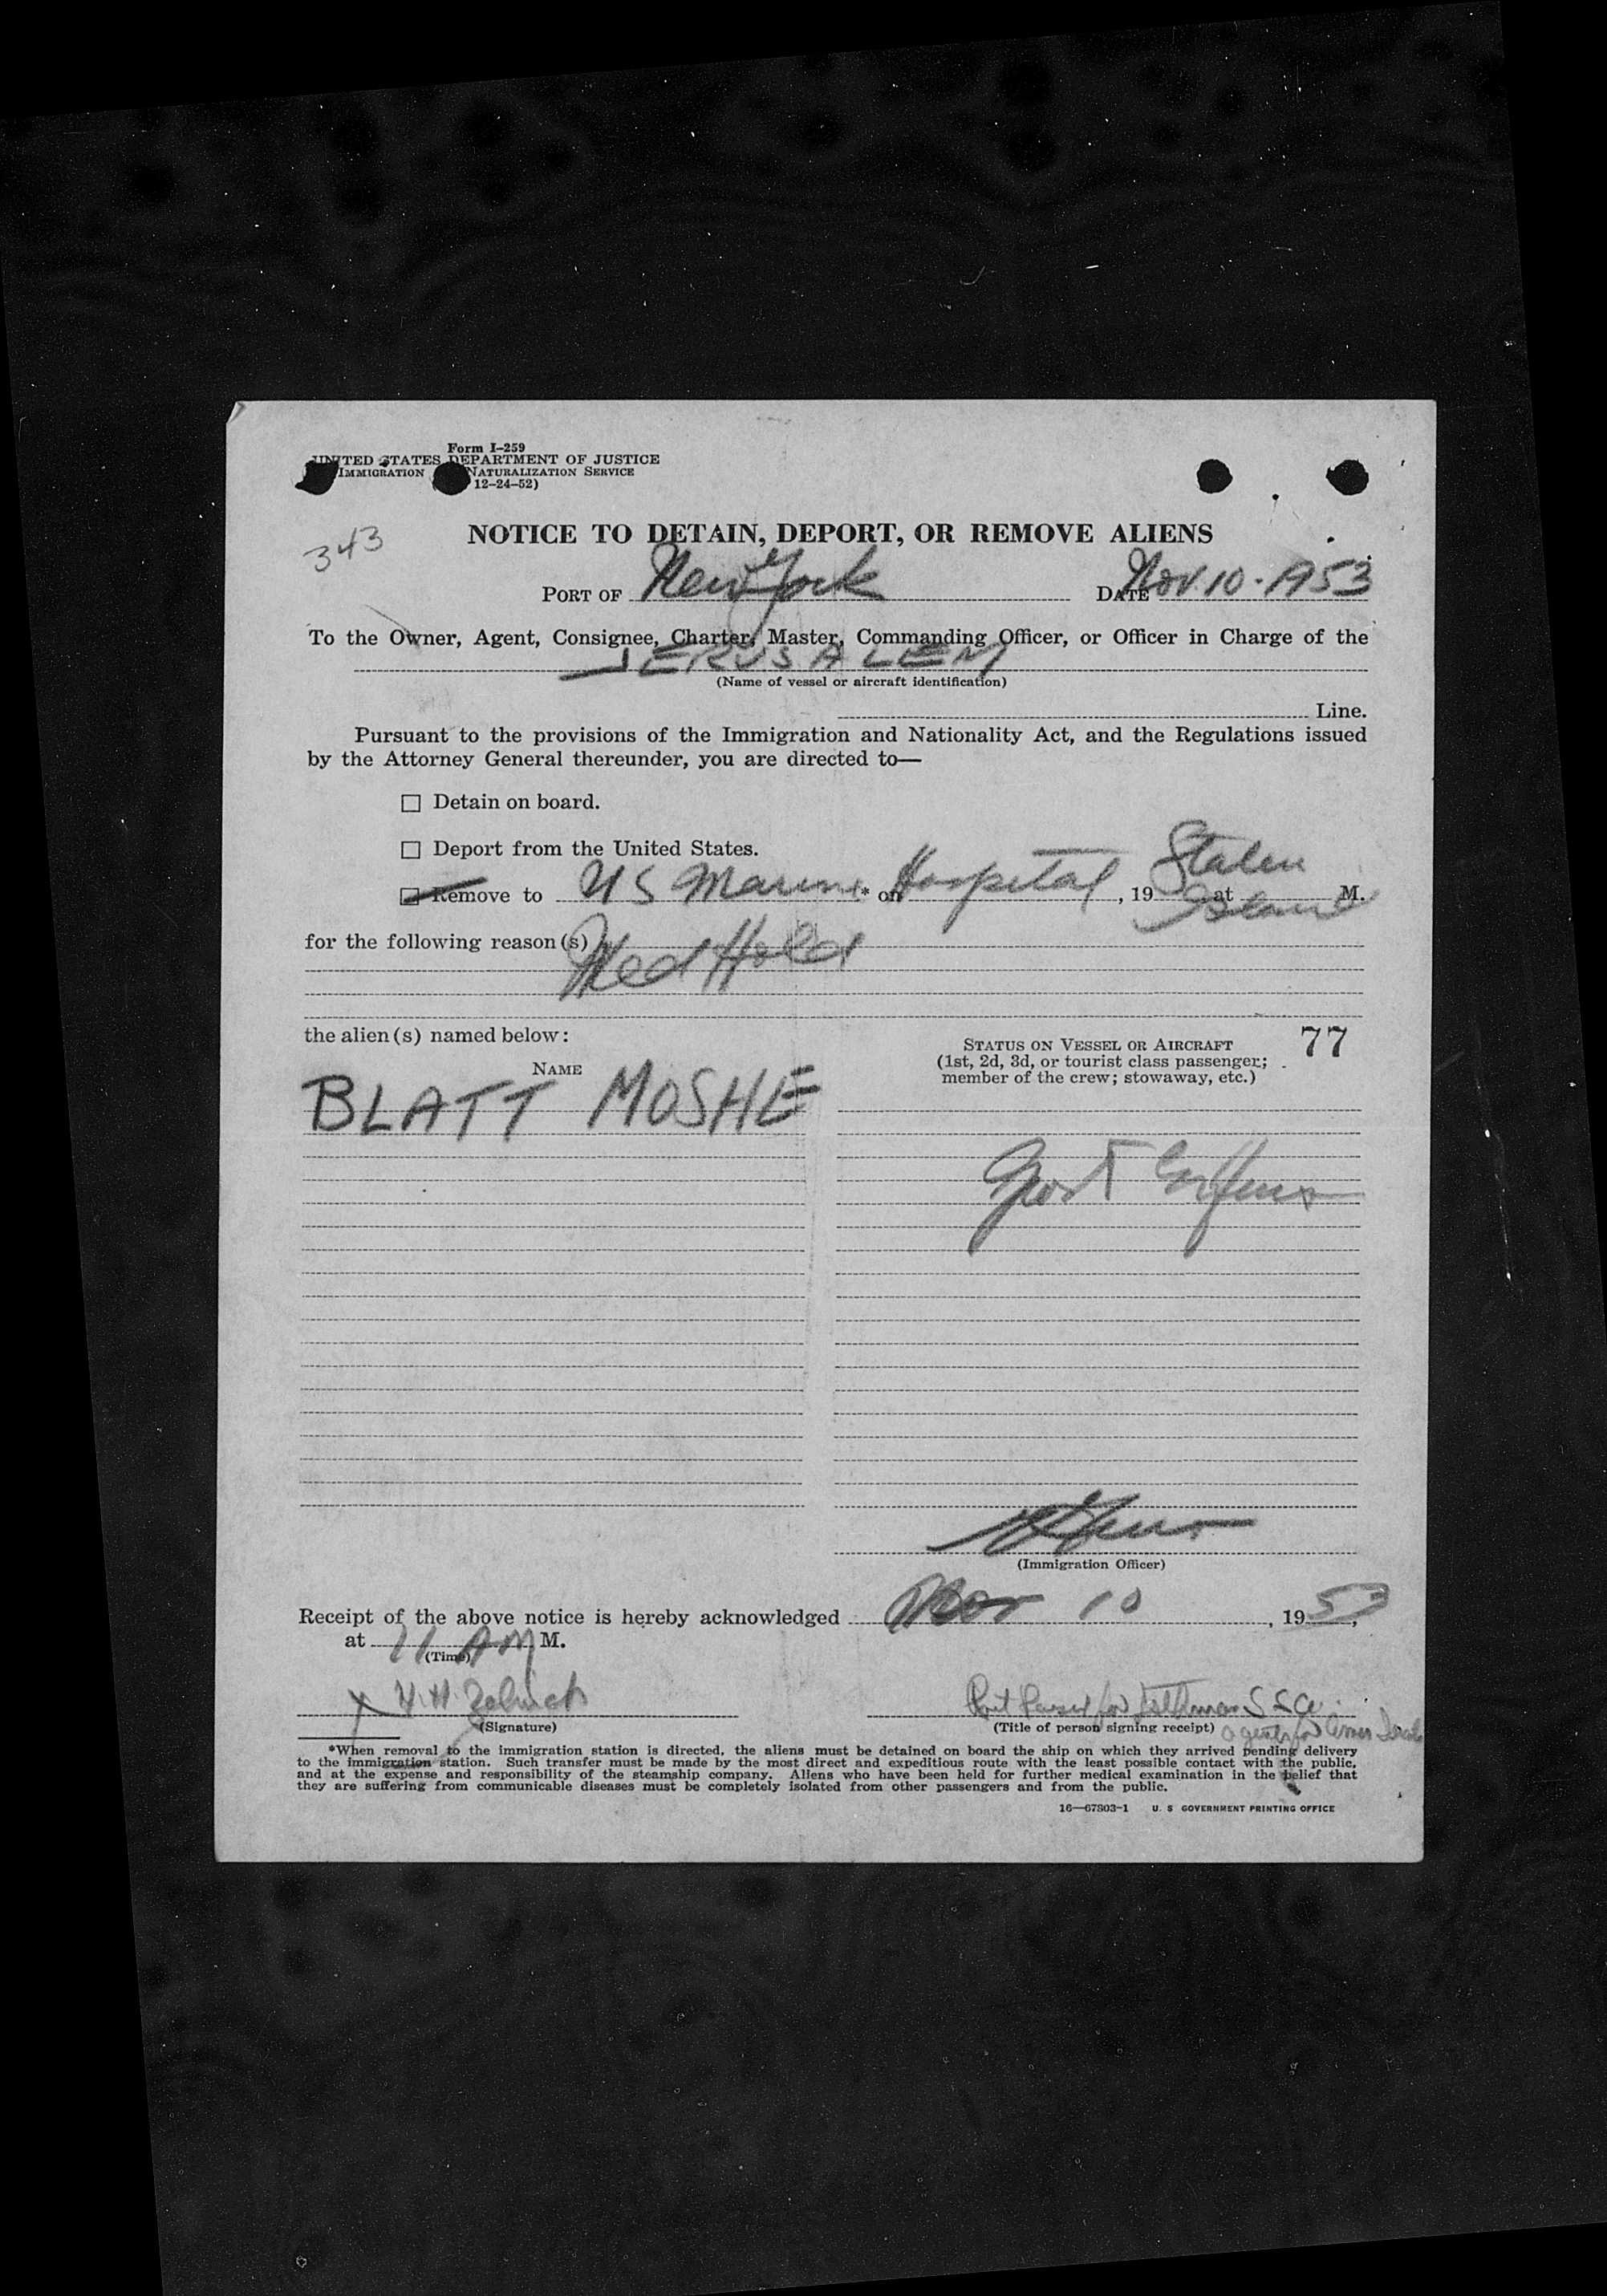 Form I-259
UNITED STATES DEPARTMENT OF JUSTICE
IMMIGRATION NATURALIZATION SERVICE
12-24-52)
343
NOTICE TO DETAIN, DEPORT, OR REMOVE ALIENS
PORT OF New York DATE Nov. 10 - 1953
To the Owner, Agent, Consignee, Charter, Master, Commanding Officer, or Officer in Charge of the
JERUSALEM
(Name of vessel or aircraft identification)
Line.
Pursuant to the provisions of the Immigration and Nationality Act, and the Regulations issued
by the Attorney General thereunder, you are directed to—
☐ Detain on board.
☐ Deport from the United States.
Remove to US Marine * on Hospital, 19 Staten Island at M.
for the following reason(s) Med Hold
the alien(s) named below:
STATUS ON VESSEL OR AIRCRAFT 77
(1st, 2d, 3d, or tourist class passenger;
member of the crew; stowaway, etc.)
NAME
BLATT MOSHE
(Immigration Officer)
Receipt of the above notice is hereby acknowledged Nov 10, 1953,
at 11 AM M.
(Time)
X H. H.
(Signature)
Port for S S Co.
(Title of person signing receipt) agents for
*When removal to the immigration station is directed, the aliens must be detained on board the ship on which they arrived pending delivery
to the immigration station. Such transfer must be made by the most direct and expeditious route with the least possible contact with the public,
and at the expense and responsibility of the steamship company. Aliens who have been held for further medical examination in the belief that
they are suffering from communicable diseases must be completely isolated from other passengers and from the public.
16—67803-1 U. S GOVERNMENT PRINTING OFFICE